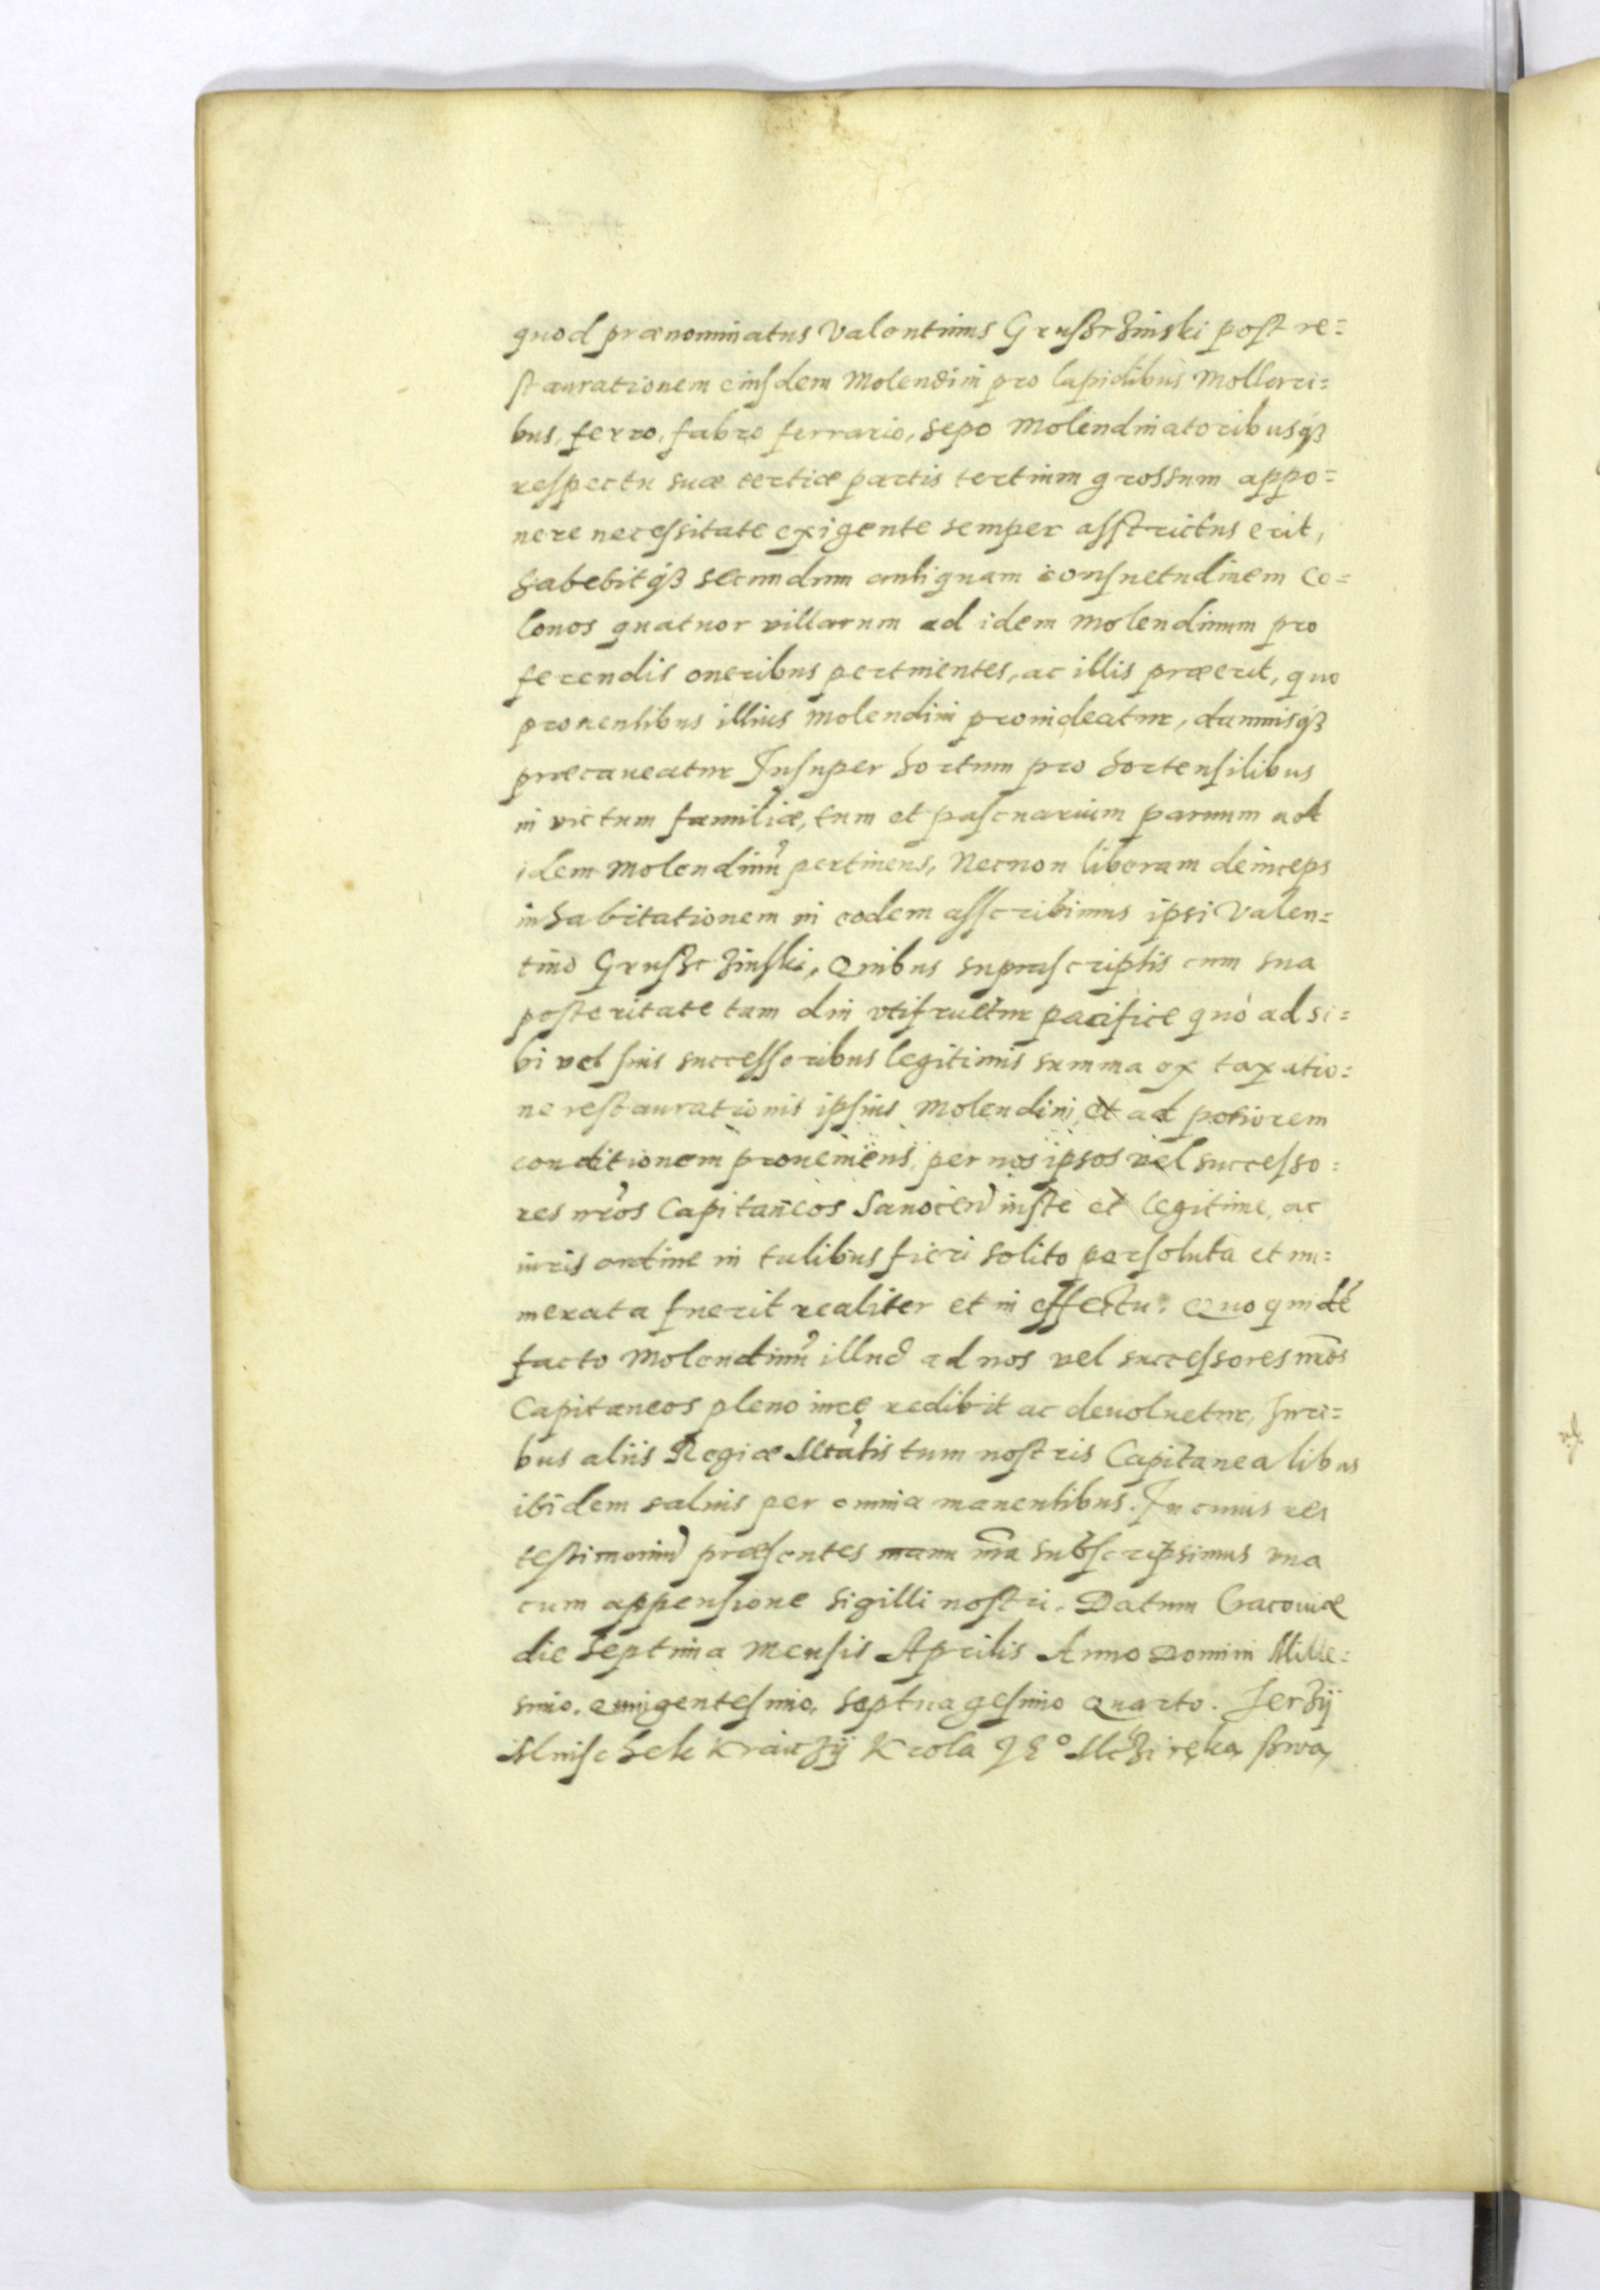 quod prænominatus Valentinus Grusſczinski post re=
staurationem eiusdem Molendini pro lapidibus Mollari=
bus, ferro, fabro ferrario, sepo Molendinatoribusqꝫ
respectu suæ tertiæ partis tertium grossum appo=
nere necessitate exigente semper asstrictus erit,
habebitqꝫ secundum antiquam consuetudinem Co=
lonos quatuor villarum ad idem Molendinum pro
ferendis oneribus pertinentes, ac illis præerit, quo
prouentibus illius Molendini prouideatur, damnisqꝫ
præcaueatur Insuper hortum pro hortensilibus
in victum familiæ, tum et pascuarium paruum ad
idem Molendinū pertinens, Necnon liberam deinceps
inhabitationem in eodem asscribimus ipsi Valen=
tino Grusſczinski, Quibus suprascriptis cum sua
posteritate tam diu vtifruetur pacifice quò ad si=
bi vel suis successoribus legitimis summa ex taxatio=
ne restaurationis ipsius Molendini et ad potiorem
conditionem proueniens, per nos ipsos vel successo=
res nr̃os Capitaneos Sanocen̄ iuste et legitime, ac
iuris ordine in talibus fieri solito persoluta et nu=
merata fuerit realiter et in effectu. Quo quidē
facto Molendinū illud ad nos vel successores nr̃os
Capitaneos pleno iure redibit ac deuoluetur, Iuri=
bus aliis Regiæ Mtãtis tum nostris Capitanealibus
ibidem saluis per omnia manentibus. In cuius rei
testimoniū præsentes manu nr̃a subscripsimus vna
cum appensione sigilli nostri. Datum Cracouiæ
die Septima Mensis Aprilis Anno Domini Mille=
simo, quingentesimo, septuagesimo Quarto. Jerzÿ
Mnischek Kraiczÿ Krola Jeᵒ Mczi ręką swą